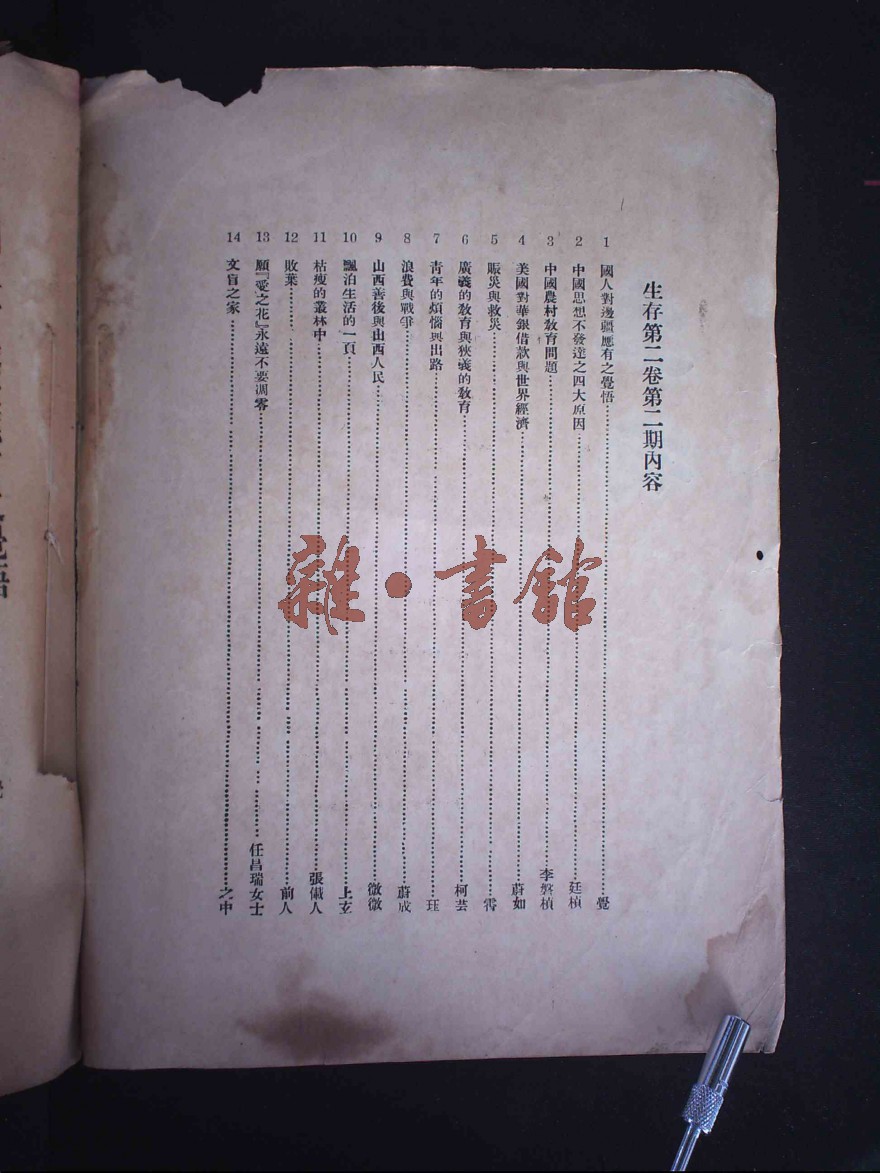 生存第二卷第二期內容
1 國人對邊疆應有之覺悟 覺
2 中國思想不發達之四大原因 廷楨
3 中國農村敎育問題 李磐楨
4 美國對華銀借款與世界經濟 蔚如
5 賑災與救災 霽
6 廣義的敎育與狹義的敎育 柯芸
7 靑年的煩惱與出路 珏
8 浪費與戰爭 蔚成
9 山西善後與山西人民 微微
10 飄泊生活的一頁 上玄
11 枯瘦的叢林中 張儎人
12 敗葉 前人
13 願『愛之花』永遠不要凋零 任昌瑞女士
14 文盲之家 之中
雜·書館